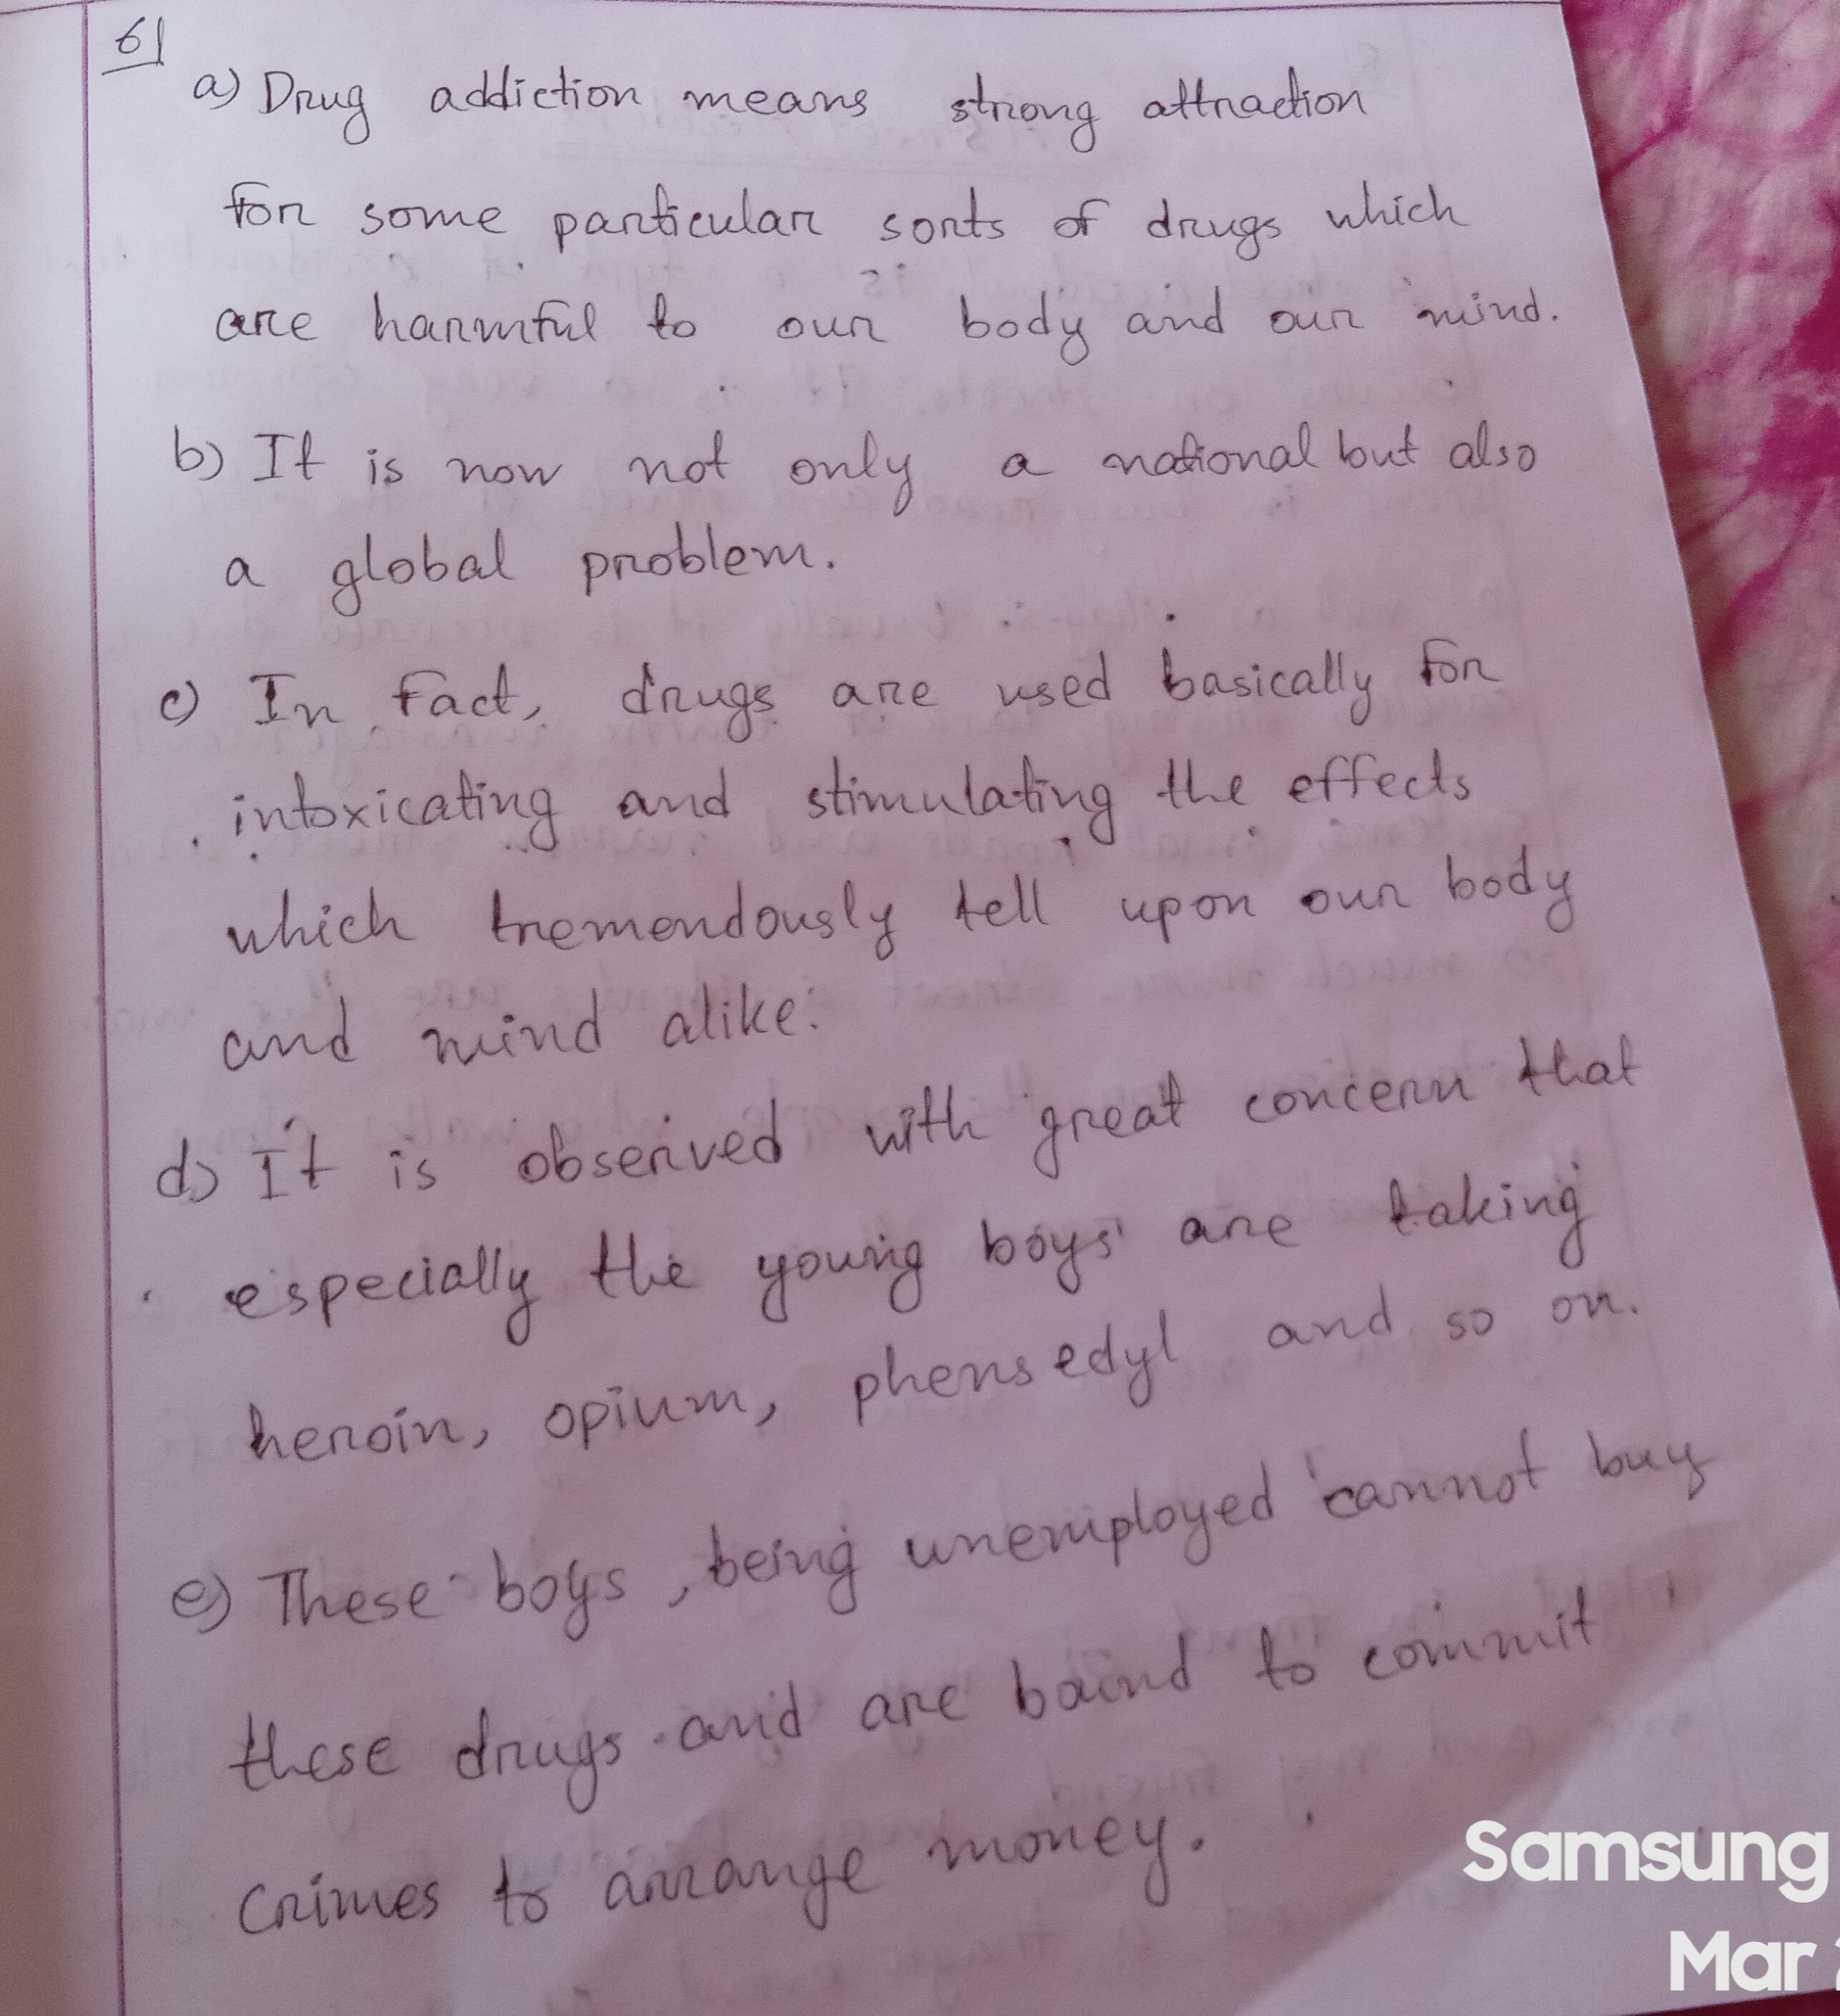 6|
a) Drug addiction means strong attraction
for some particular sorts of drugs which
are harmful to our body and our mind.
b) It is now not only a national but also
a global problem.
c) In fact, drugs are used basically for
intoxicating and stimulating the effects
which tremendously tell upon our body
and mind alike.
d) It is observed with great concern that
especially the young boys are taking
heroin, opium, phensedyl and so on.
e) These boys, being unemployed cannot buy
these drugs and are baund to commit
crimes to arrange money.
Samsung
Mar